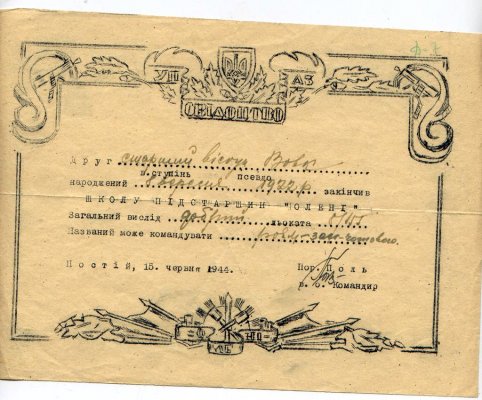 Ф-7
УП АЗ
СВІДОЦТВО
Друг старший вістун Вовк
в.ступінь псевдо
народжений вересня 1922 р. закінчив
ШКОЛУ ПІДСТАРШИН "ОЛЕНІ"
Загальний вислід добрий льоката
Названий може командувати
Постій, 15. червня 1944.
Пор. Поль
в. о. Командир